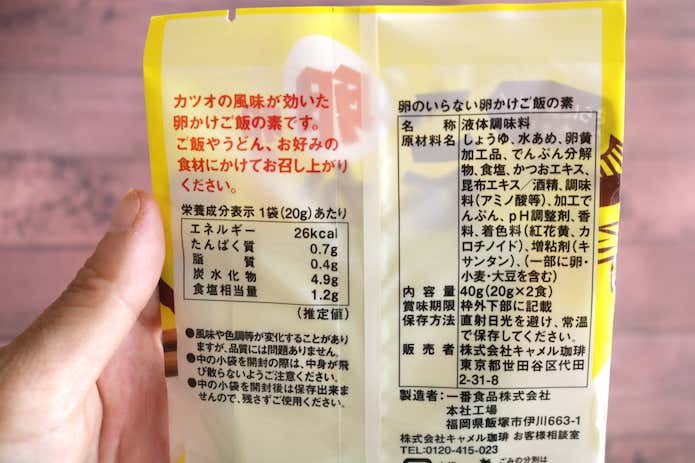 カツオの風味が効いた
卵かけご飯の素です。
ご飯やうどん、お好みの
食材にかけてお召し上がり
ください。
栄養成分表示 1袋(20g)あたり
エネルギー 26kcal
たんぱく質 0.7g
脂質 0.4g
炭水化物 4.9g
食塩相当量 1.2g
(推定値)
●風味や色調等が変化することがあり
ますが、品質には問題ありません。
●中の小袋を開封の際は、中身が飛
び散らないようご注意ください。
●中の小袋を開封後は保存出来ま
せんので、残さずご使用ください。
卵のいらない卵かけご飯の素
名称 液体調味料
原材料名 しょうゆ、水あめ、卵黄
加工品、でんぷん分解
物、食塩、かつおエキス、
昆布エキス/酒精、調味
料(アミノ酸等)、加工で
んぷん、pH調整剤、香
料、着色料(紅花黄、カ
ロチノイド)、増粘剤(キ
サンタン)、(一部に卵・
小麦・大豆を含む)
内容量 40g(20g×2食)
賞味期限 枠外下部に記載
保存方法 直射日光を避け、常温
で保存してください。
販売者 株式会社キャメル珈琲
東京都世田谷区代田
2-31-8
製造者:一番食品株式会社
本社工場
福岡県飯塚市伊川663-1
株式会社キャメル珈琲 お客様相談室
TEL:0120-415-023
ごみの分別は